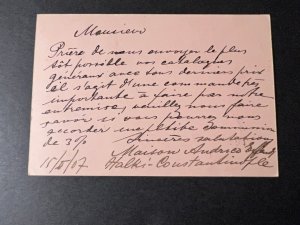 Monsieur
Prière de nous envoyer le plus
tôt possible vos catalogues
généraux avec vos derniers prix
il s'agit d'une commande très
importante à faire par notre
entremise, veuillez nous faire
savoir si vous pourrez nous
accorder une petite commission
de 3%
Sincères salutations
Maison Andrico
15/5/07 Halki-Constantinople